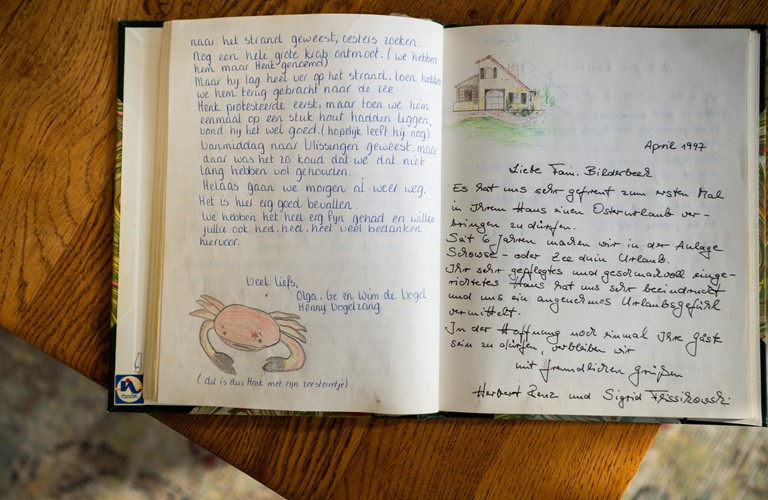 naar het strand geweest, oesters zoeken.
Nog een hele grote krab ontmoet. (we hebben
hem maar Henk genoemd)
Maar hij lag heel ver op het strand, toen hebben
we hem terug gebracht naar de zee.
Henk protesteerde eerst, maar toen we hem
eenmaal op een stuk hout hadden liggen,
vond hij het wel goed. (hopelijk leeft hij nog)
Vanmiddag naar Vlissingen geweest, maar
daar was het zo koud dat we dat niet
lang hebben vol gehouden.
Helaas gaan we morgen al weer weg.
Het is hier erg goed bevallen.
We hebben het heel erg fijn gehad en willen
jullie ook heel, heel, heel veel bedanken
hiervoor.
Veel liefs,
Olga, Ge en Wim de Vogel
Henny Vogelzang
(dit is dus Henk met zijn zeesterretje)
April 1997
Liebe Fam. Bilderbeek
Es hat uns sehr gefreut zum ersten Mal
in Ihrem Haus einen Osterurlaub ver-
bringen zu dürfen.
Seit 6 Jahren machen wir in der Anlage
Schowse- oder Zee duin Urlaub.
Ihr sehr gepflegtes und geschmackvoll einge-
richtetes Haus hat uns sehr beeindruckt
und uns ein angenehmes Urlaubsgefühl
vermittelt.
In der Hoffnung noch einmal Ihre Gäste
sein zu dürfen, verbleiben wir
mit freundlichen Grüßen
Herbert Renz und Sigrid